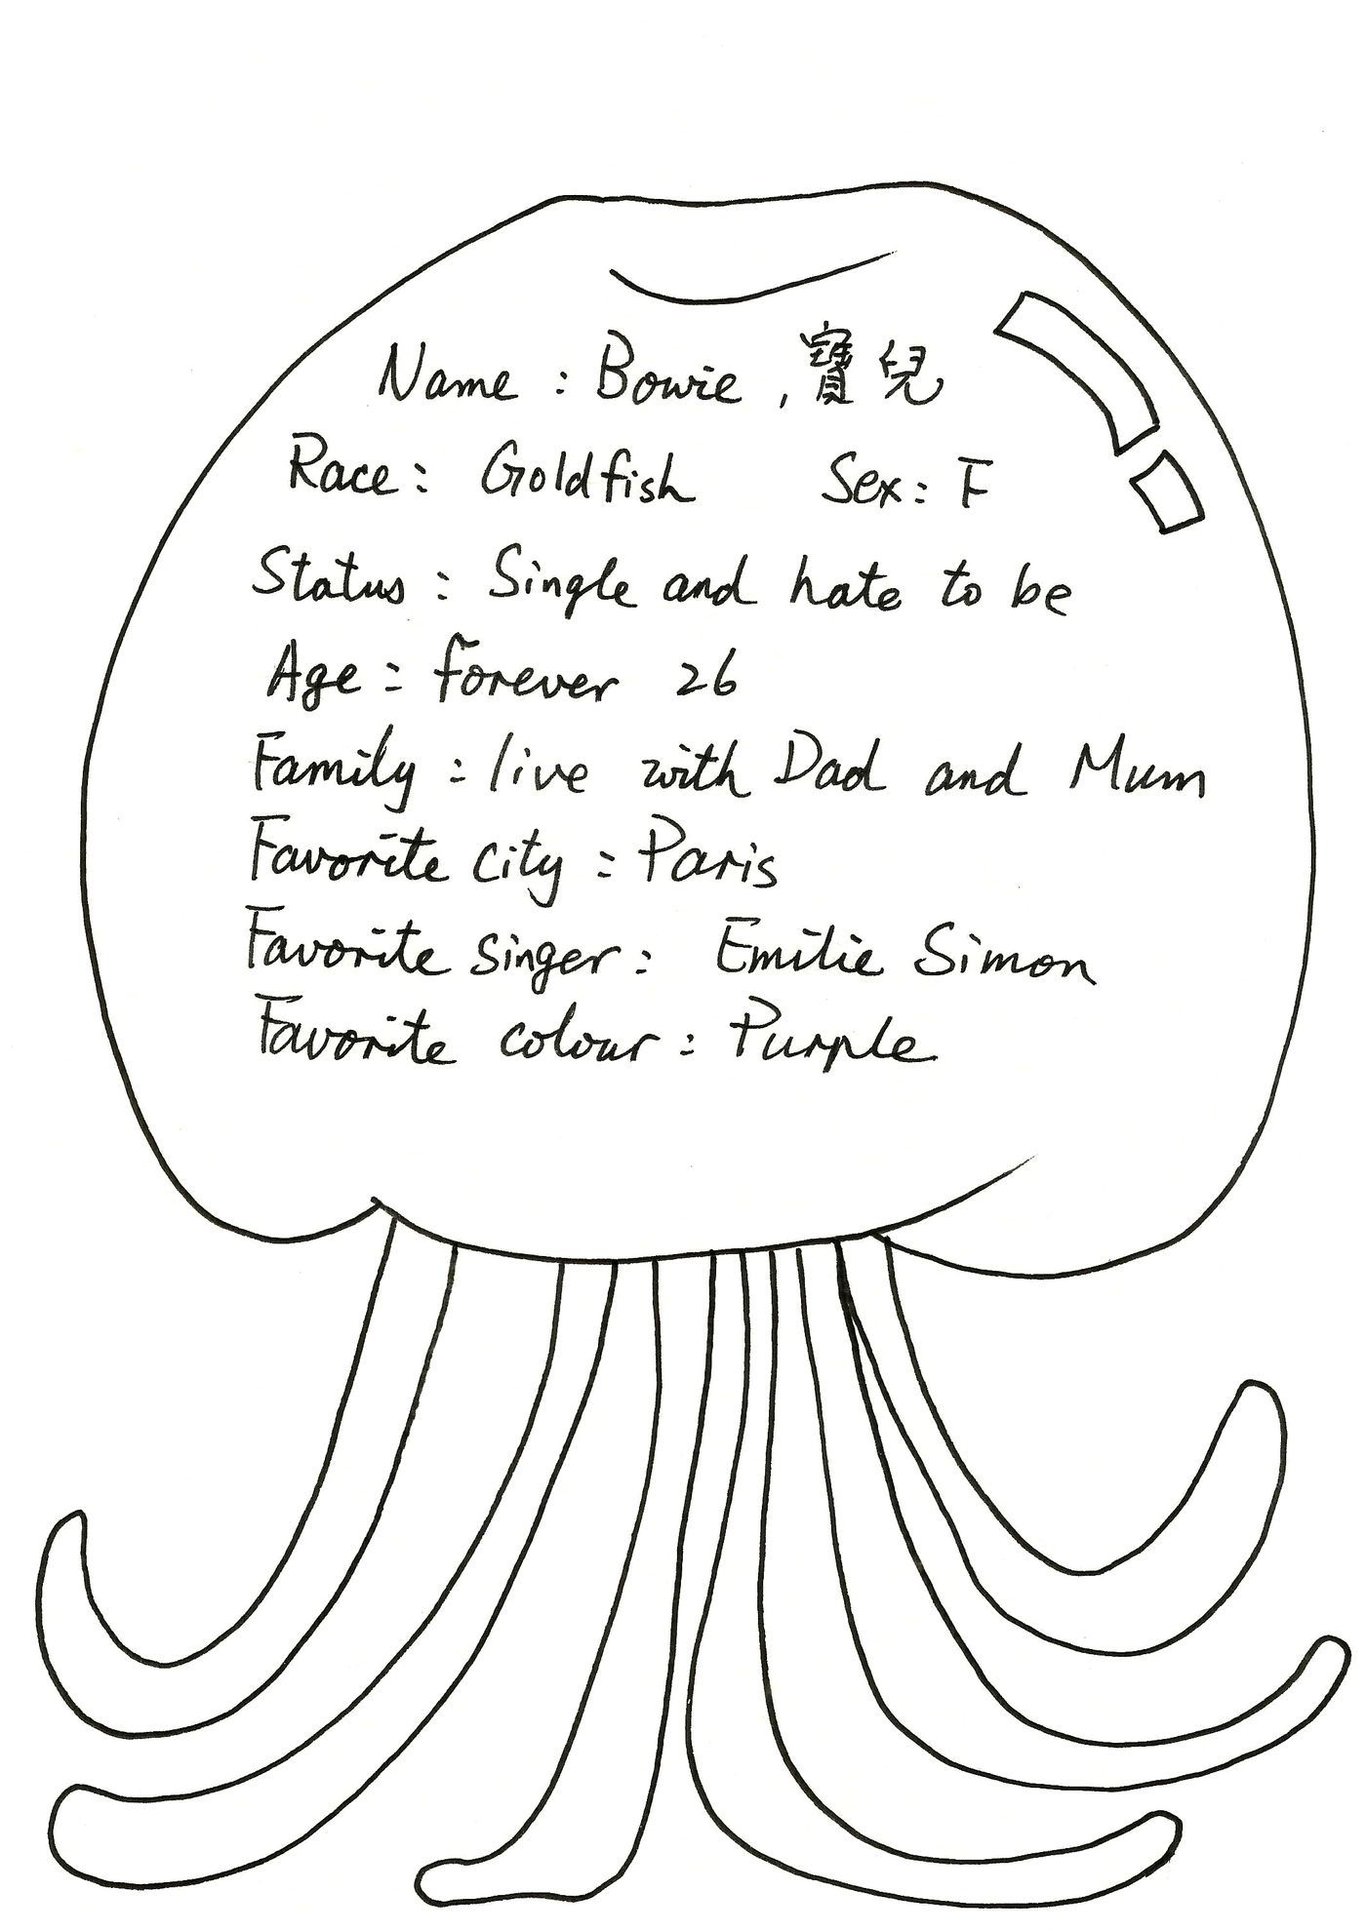 Name : Bowie , 寶兒
Race : Goldfish Sex : F
Status : Single and hate to be
Age : forever 26
Family : live with Dad and Mum
Favorite city : Paris
Favorite singer : Emilie Simon
Favorite colour : Purple